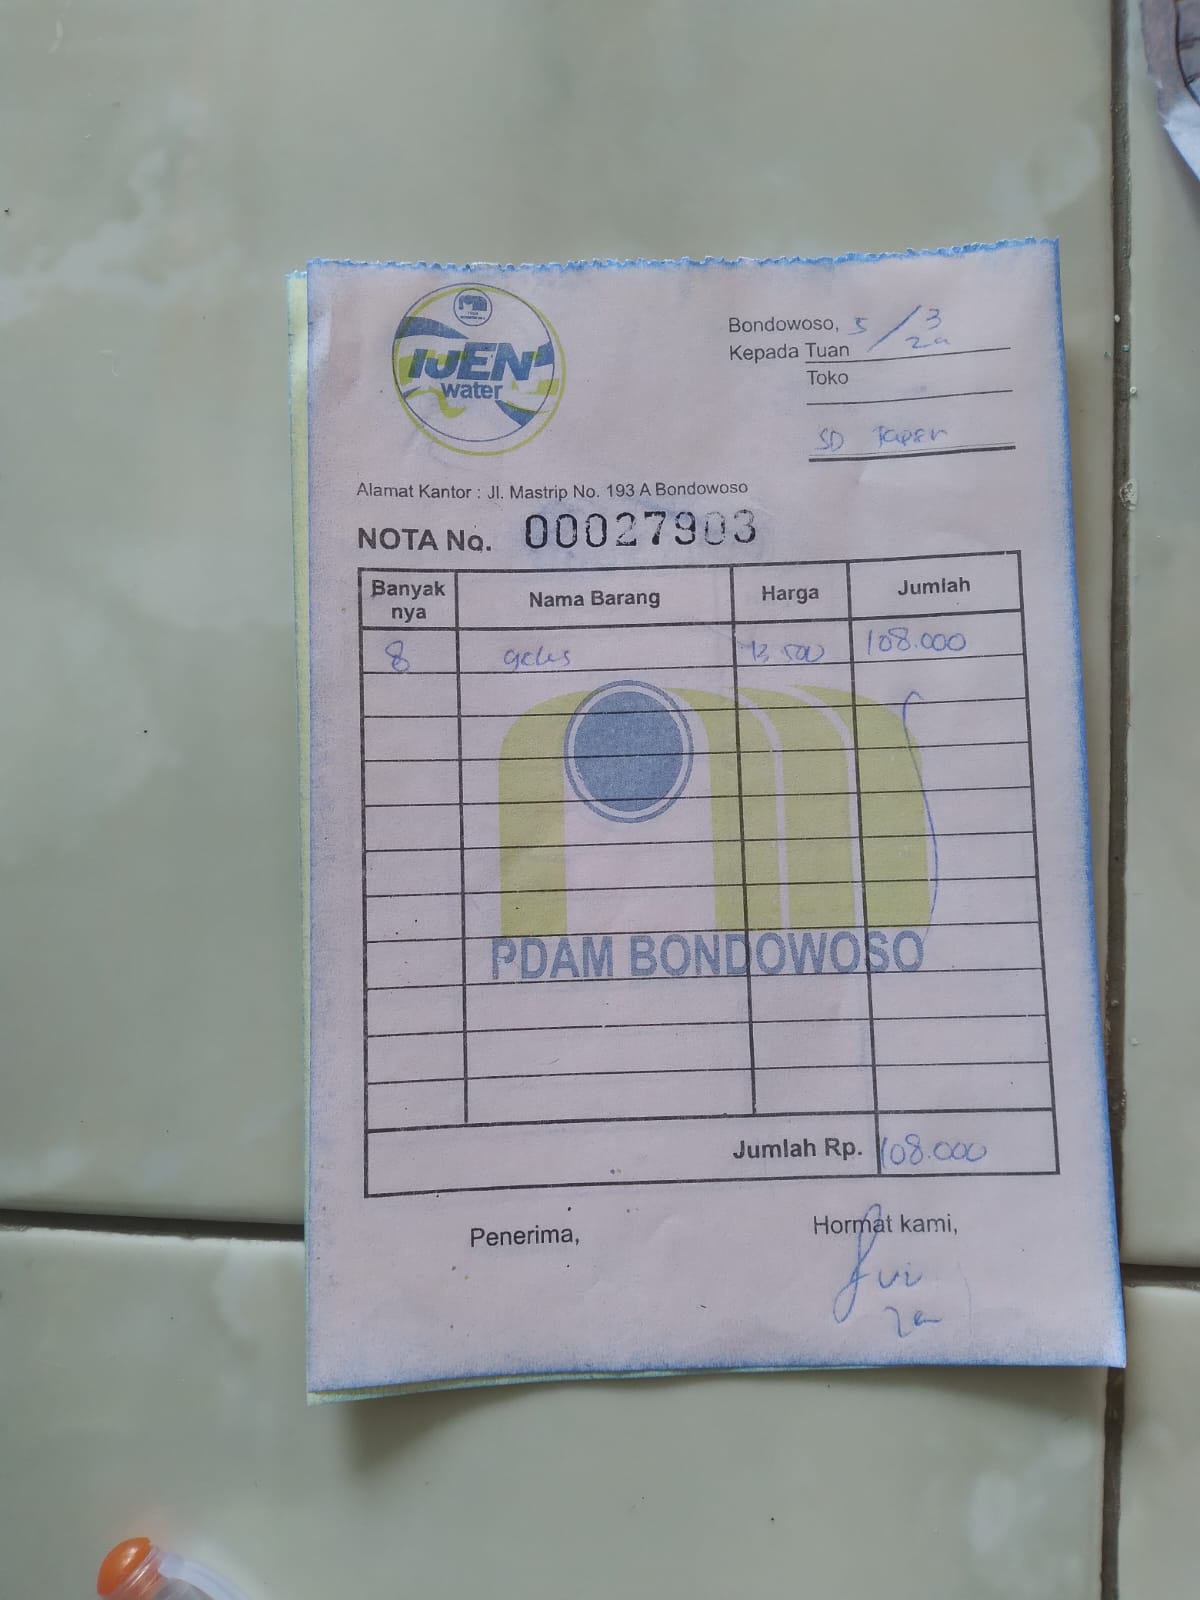 IJEN
water
Bondowoso, 5/3
Kepada Tuan
Toko
SD Tapen
Alamat Kantor : Jl. Mastrip No. 193 A Bondowoso
NOTA No. 00027903
Banyak nya Nama Barang Harga Jumlah
8 gelas 13.500 108.000
PDAM BONDOWOSO
Jumlah Rp. 108.000
Penerima, Hormat kami,